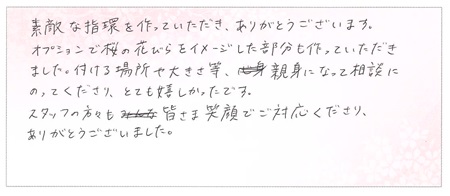 素敵な指環を作っていただき、ありがとうございます。
オプションで桜の花びらをイメージした部分も作っていただき
ました。付ける場所や大きさ等、親身になって相談に
のってくださり、とても嬉しかったです。
スタッフの方々も皆さま笑顔でご対応くださり、
ありがとうございました。